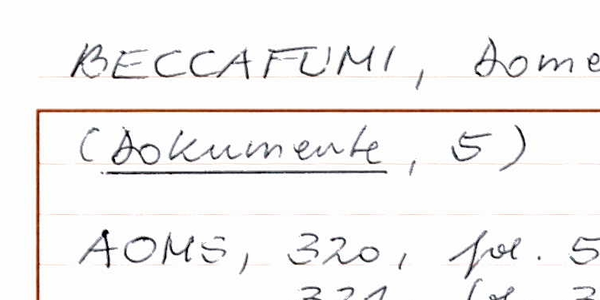 BECCAFUMI, Dome
(Dokumente, 5)
AOMS, 320, fol. 5
321, fol. 3